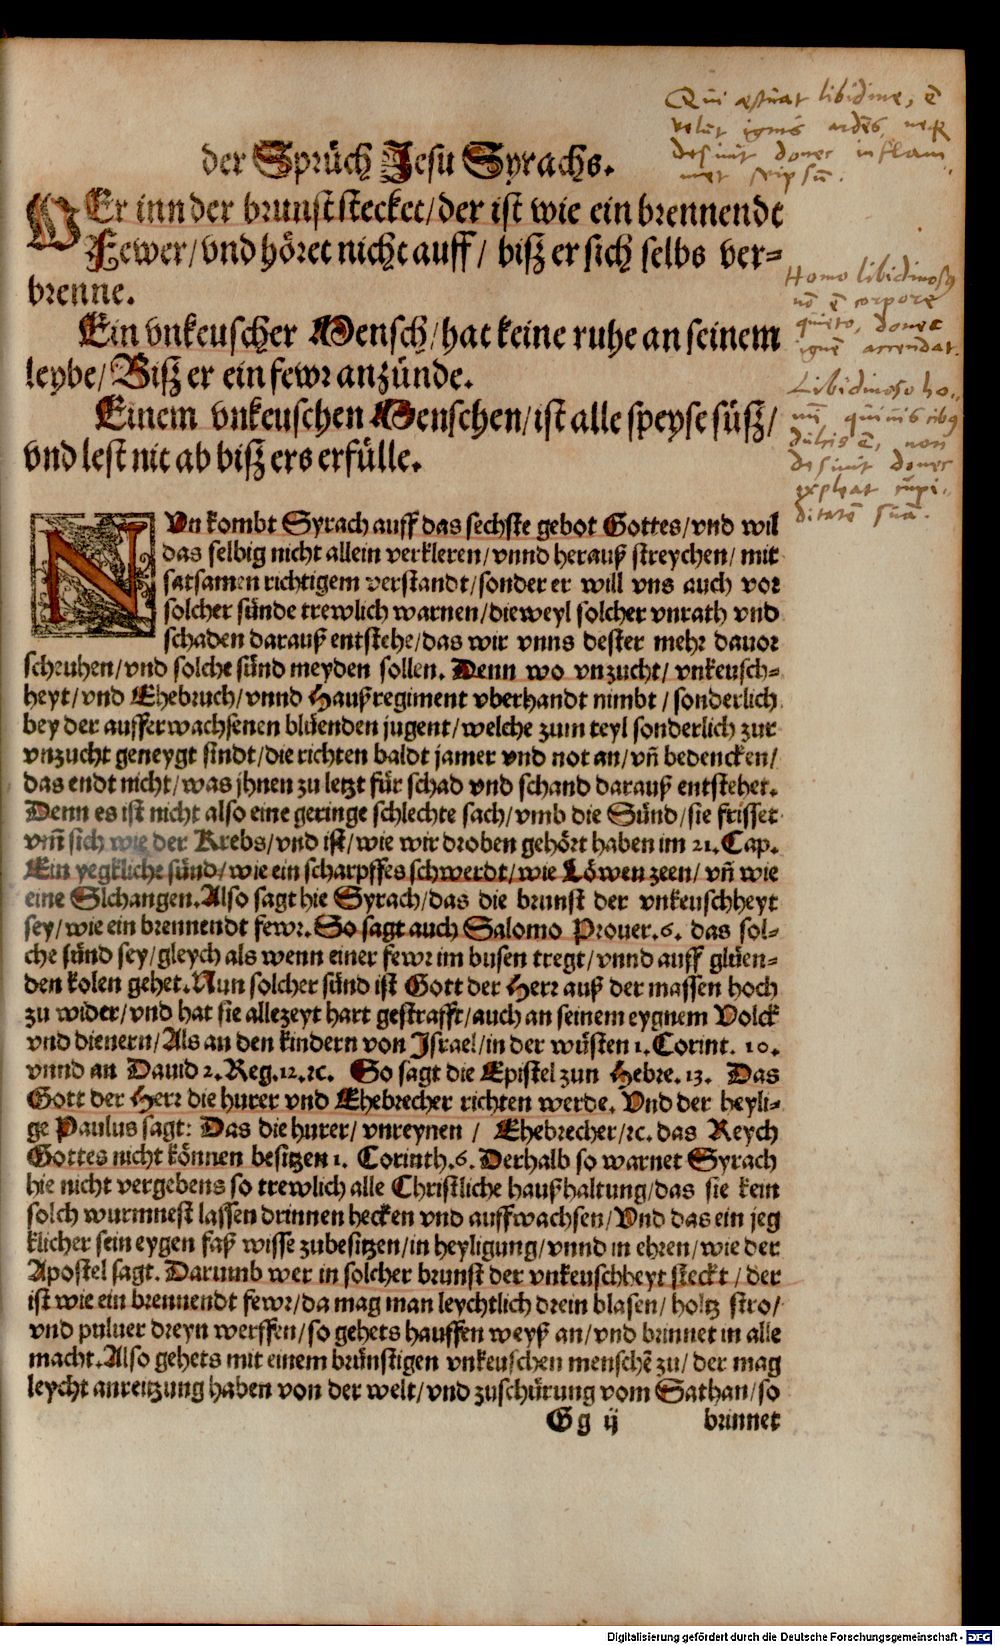 der Sprüch Jesu Syrachs.
WEr inn der brunst stecket/der ist wie ein brennendt
Fewer/vnd höret nicht auff/ bisz er sich selbs ver-
brenne.
Ein vnkeuscher Mensch/hat keine ruhe an seinem
leybe/Bisz er ein fewr anzünde.
Einem vnkeuschen Menschen/ist alle speyse süsz/
vnd lest nit ab bisz ers erfülle.
Qui æstuat libidine, ē
velut ignis ardēs, neq̃
desinit donec inflam-
met seipsū.
Homo libidinosꝰ
nō ē corpore
quieto, donec
ignē accendat.
Libidinoso ho-
nī, quiuis cibꝰ
dulcis ē, non
desinit donec
expleat cupi-
ditatē suā.
NVn kombt Syrach auff das sechste gebot Gottes/vnd wil
das selbig nicht allein verkleren/vnnd herauß streychen/ mit
satsamen richtigem verstandt/sonder er will vns auch vor
solcher sünde trewlich warnen/dieweyl solcher vnrath vnd
schaden darauß entstehe/das wir vnns dester mehr dauor
schruhen/vnd solche sünd meyden sollen. Denn wo vnzucht/ vnkeusch-
heyt/vnd Ehebruch/vnnd Haußregiment vberhandt nimbt/sonderlich
bey der aufferwachsenen blüenden jugent/welche zum teyl sonderlich zur
vnzucht geneygt sindt/die richten baldt jamer vnd not an/vñ bedencken/
das endt nicht/was jhnen zu letzt für schad vnd schand darauß entstehet.
Denn es ist nicht also eine geringe schlechte sach/vmb die Sünd/sie frisset
vmm̃ sich wie der Krebs/vnd ist/wie wir droben gehört haben im 21. Cap.
Ein yegkliche sünd/wie ein scharpffes schwerdt/wie Löwen zeen/vñ wie
eine Slchangen.Also sagt hie Syrach/das die brunst der vnkeuschheyt
sey/wie ein brennendt fewr.So sagt auch Salomo Prouer.6. das sol-
che sünd sey/gleych als wenn einer fewr im busen tregt/vnnd auff glüen-
den kolen gehet.Nun solcher sünd ist Gott der Herr auß der massen hoch
zu wider/vnd hat sie allezeyt hart gestrafft/auch an seinem eygnem Volck
vnd dienern/Als an den kindern von Israel/in der wüsten 1. Corint. 10.
vnnd an Dauid 2.Reg.12.ꝛc. So sagt die Epistel zun Hebre.13. Das
Gott der Herr die hurer vnd Ehebrecher richten werde. Vnd der heyli-
ge Paulus sagt: Das die hurer/ vnreynen / Ehebrecher/ꝛc.das Reych
Gottes nicht können besitzen 1. Corinth.6. Derhalb so warnet Syrach
hie nicht vergebens so trewlich alle Christliche haußhaltung/das sie kein
solch wurmnest lassen drinnen hecken vnd auffwachsen/Vnd das ein jeg
klicher sein eygen faß wisse zubesitzen/in heyligung/vnnd in ehren/wie der
Apostel sagt. Darumb wer in solcher brunst der vnkeuschheyt steckt / der
ist wie ein brennendt fewr/da mag man leychtlich drein blasen/ holtz stro/
vnd puluer dreyn werffen/so gehets hauffen weyß an/vnd brinnet in alle
macht.Also gehets mit einem brünstigen vnkeuschen menschē zu/ der mag
leycht anreitzung haben von der welt/vnd zuschürung vom Sathan/so
Gg ij brinnet
Digitalisierung gefördert durch die Deutsche Forschungsgemeinschaft - DFG